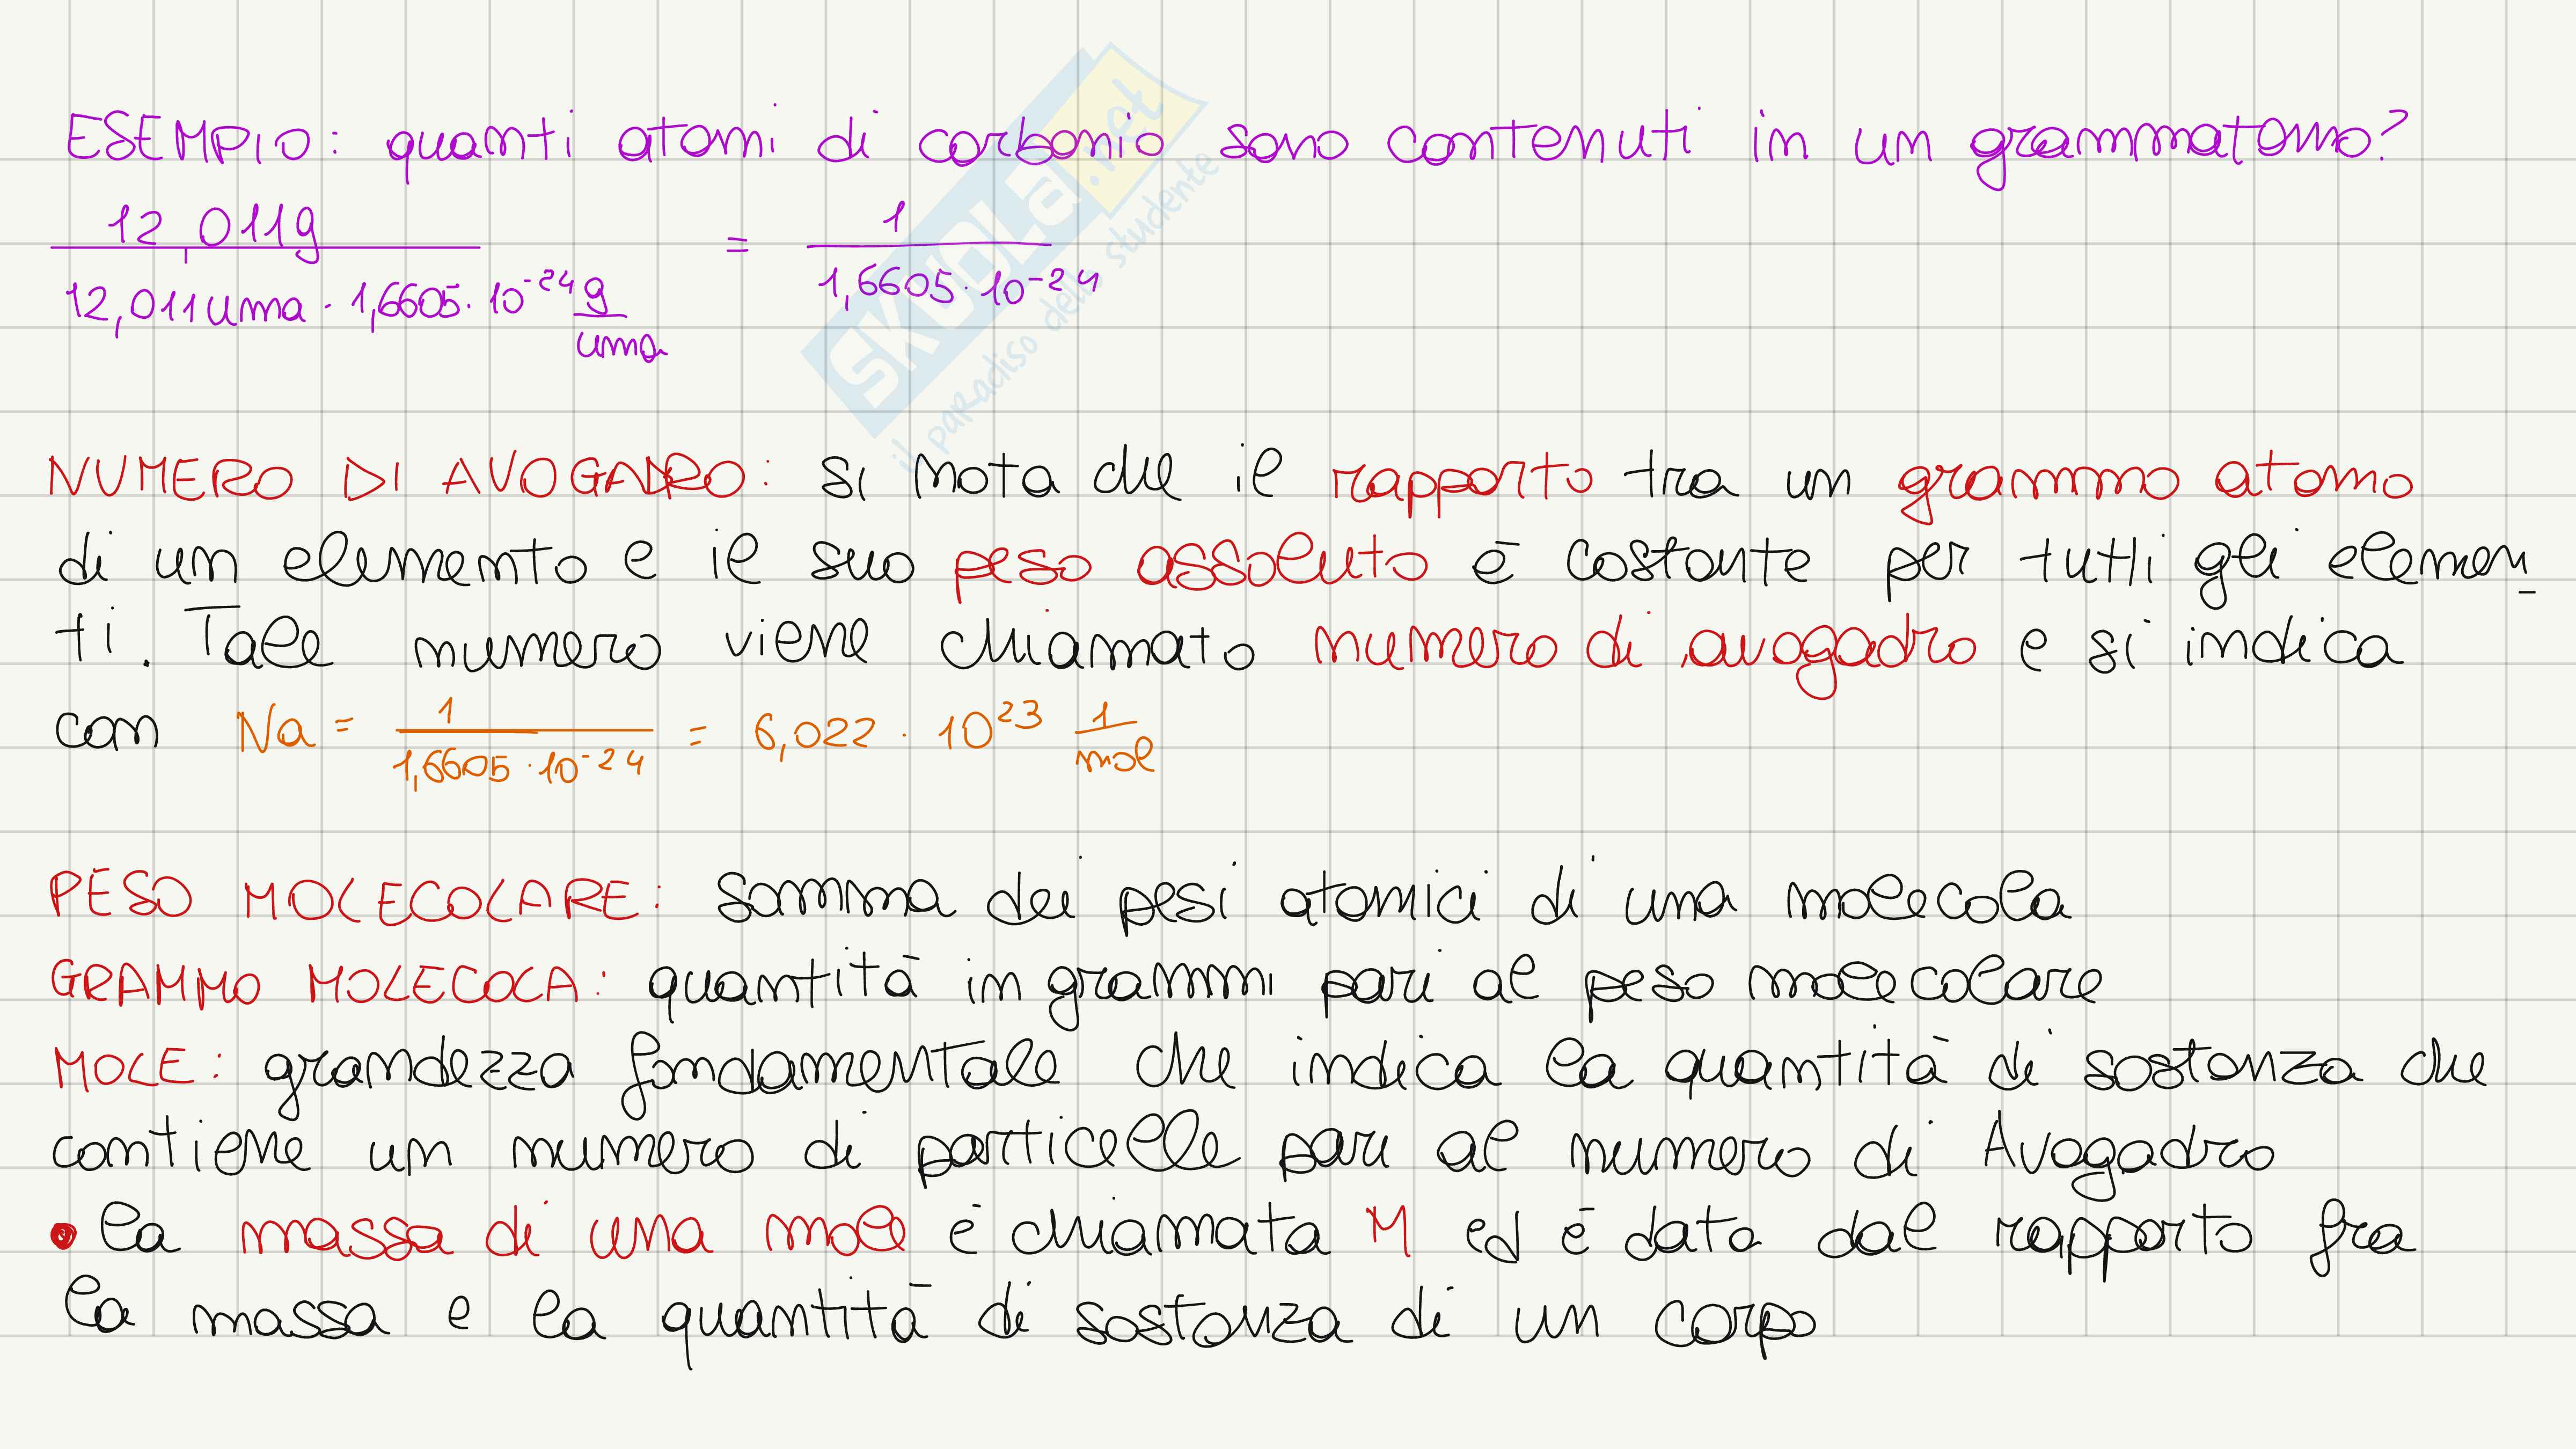 ESEMPIO: quanti atomi di carbonio sono contenuti in un grammatomo?
12,011g / 12,011uma · 1,6605 · 10⁻²⁴ g/uma = 1 / 1,6605 · 10⁻²⁴
NUMERO DI AVOGADRO: si nota che il rapporto tra un grammo atomo
di un elemento e il suo peso assoluto è costante per tutti gli elemen_
ti. Tale numero viene chiamato numero di avogadro e si indica
con Na = 1 / 1,6605 · 10⁻²⁴ = 6,022 · 10²³ 1/mol
PESO MOLECOLARE: somma dei pesi atomici di una molecola
GRAMMO MOLECOLA: quantità in grammi pari al peso molecolare
MOLE: grandezza fondamentale che indica la quantità di sostanza che
contiene un numero di particelle pari al numero di Avogadro
• la massa di una mole è chiamata M ed è data dal rapporto fra
la massa e la quantità di sostanza di un corpo
SKUOLa.net
il paradiso dello studente